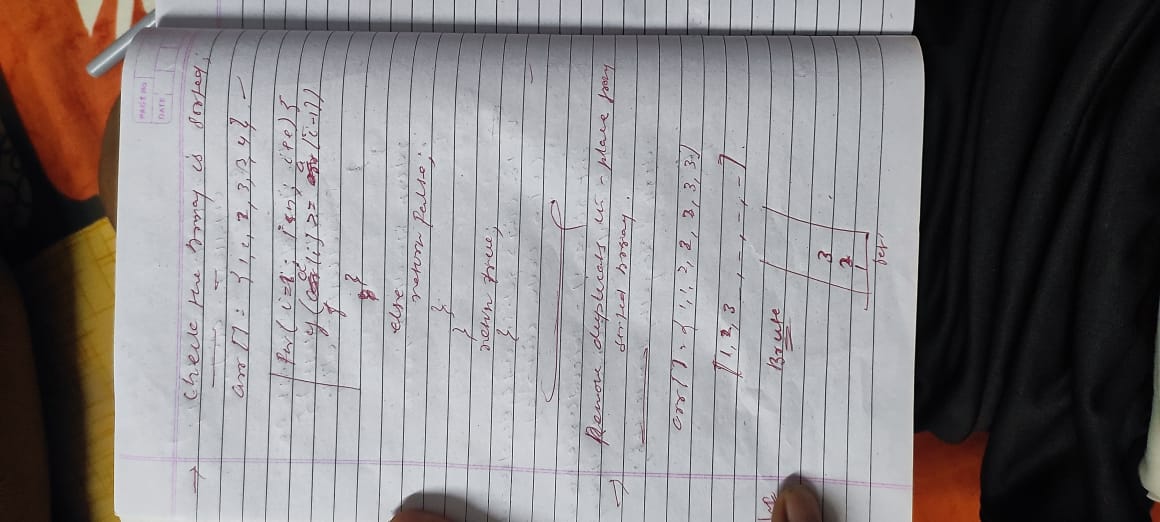 PAGE NO
DATE
→ Check the Array is sorted.
arr[] = {1, 2, 2, 3, 3, 4}
for (i=1; i<n; i++) {
if (a[i] >= a[i-1])
{
}
else
return false;
}
}
return true;
}
→ Remove duplicates in-place from
sorted Array.
arr[] = {1, 1, 2, 2, 3, 3, 3}
[1, 2, 3, _, _, _, _]
Brute
3
2
1
set